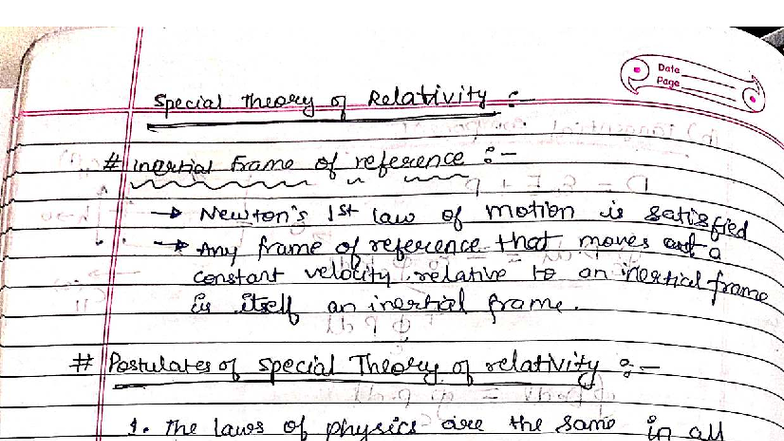 Date
Page
Special Theory of Relativity :-
# inertial frame of reference :-
→ Newton's 1st law of motion is satisfied
→ Any frame of reference that moves at a
constant velocity relative to an inertial frame
is itself an inertial frame.
# Postulates of special Theory of relativity :-
1. The laws of physics are the same in all